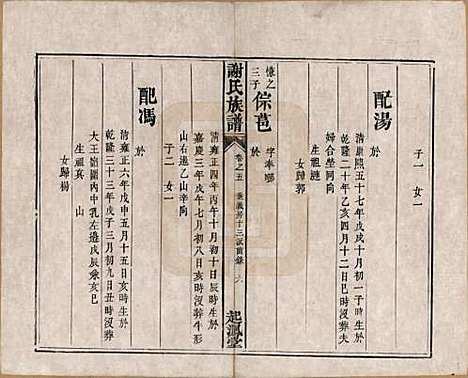 子一 女一
配湯
清康熙五十七年戊戌十月初一子時生於
乾隆二十年乙亥四月十二日巳時沒葬夫
婦合塋同向
生祖漣
女歸郭
憬之三子
倧芑
字奉
於
謝氏族譜
卷之五
起鳳堂
清雍正四年丙午十月初十日辰時生於
嘉慶三年戊午七月初八日亥時沒葬牛形
山右邊乙山辛向
子二 女一
配馮
於
清雍正六年戊申五月十五日亥時生於
乾隆三十三年戊子三月初九日丑時沒葬
大王嶺圍內中乳左邊戊辰乘亥巳
生祖真 山
女歸楊